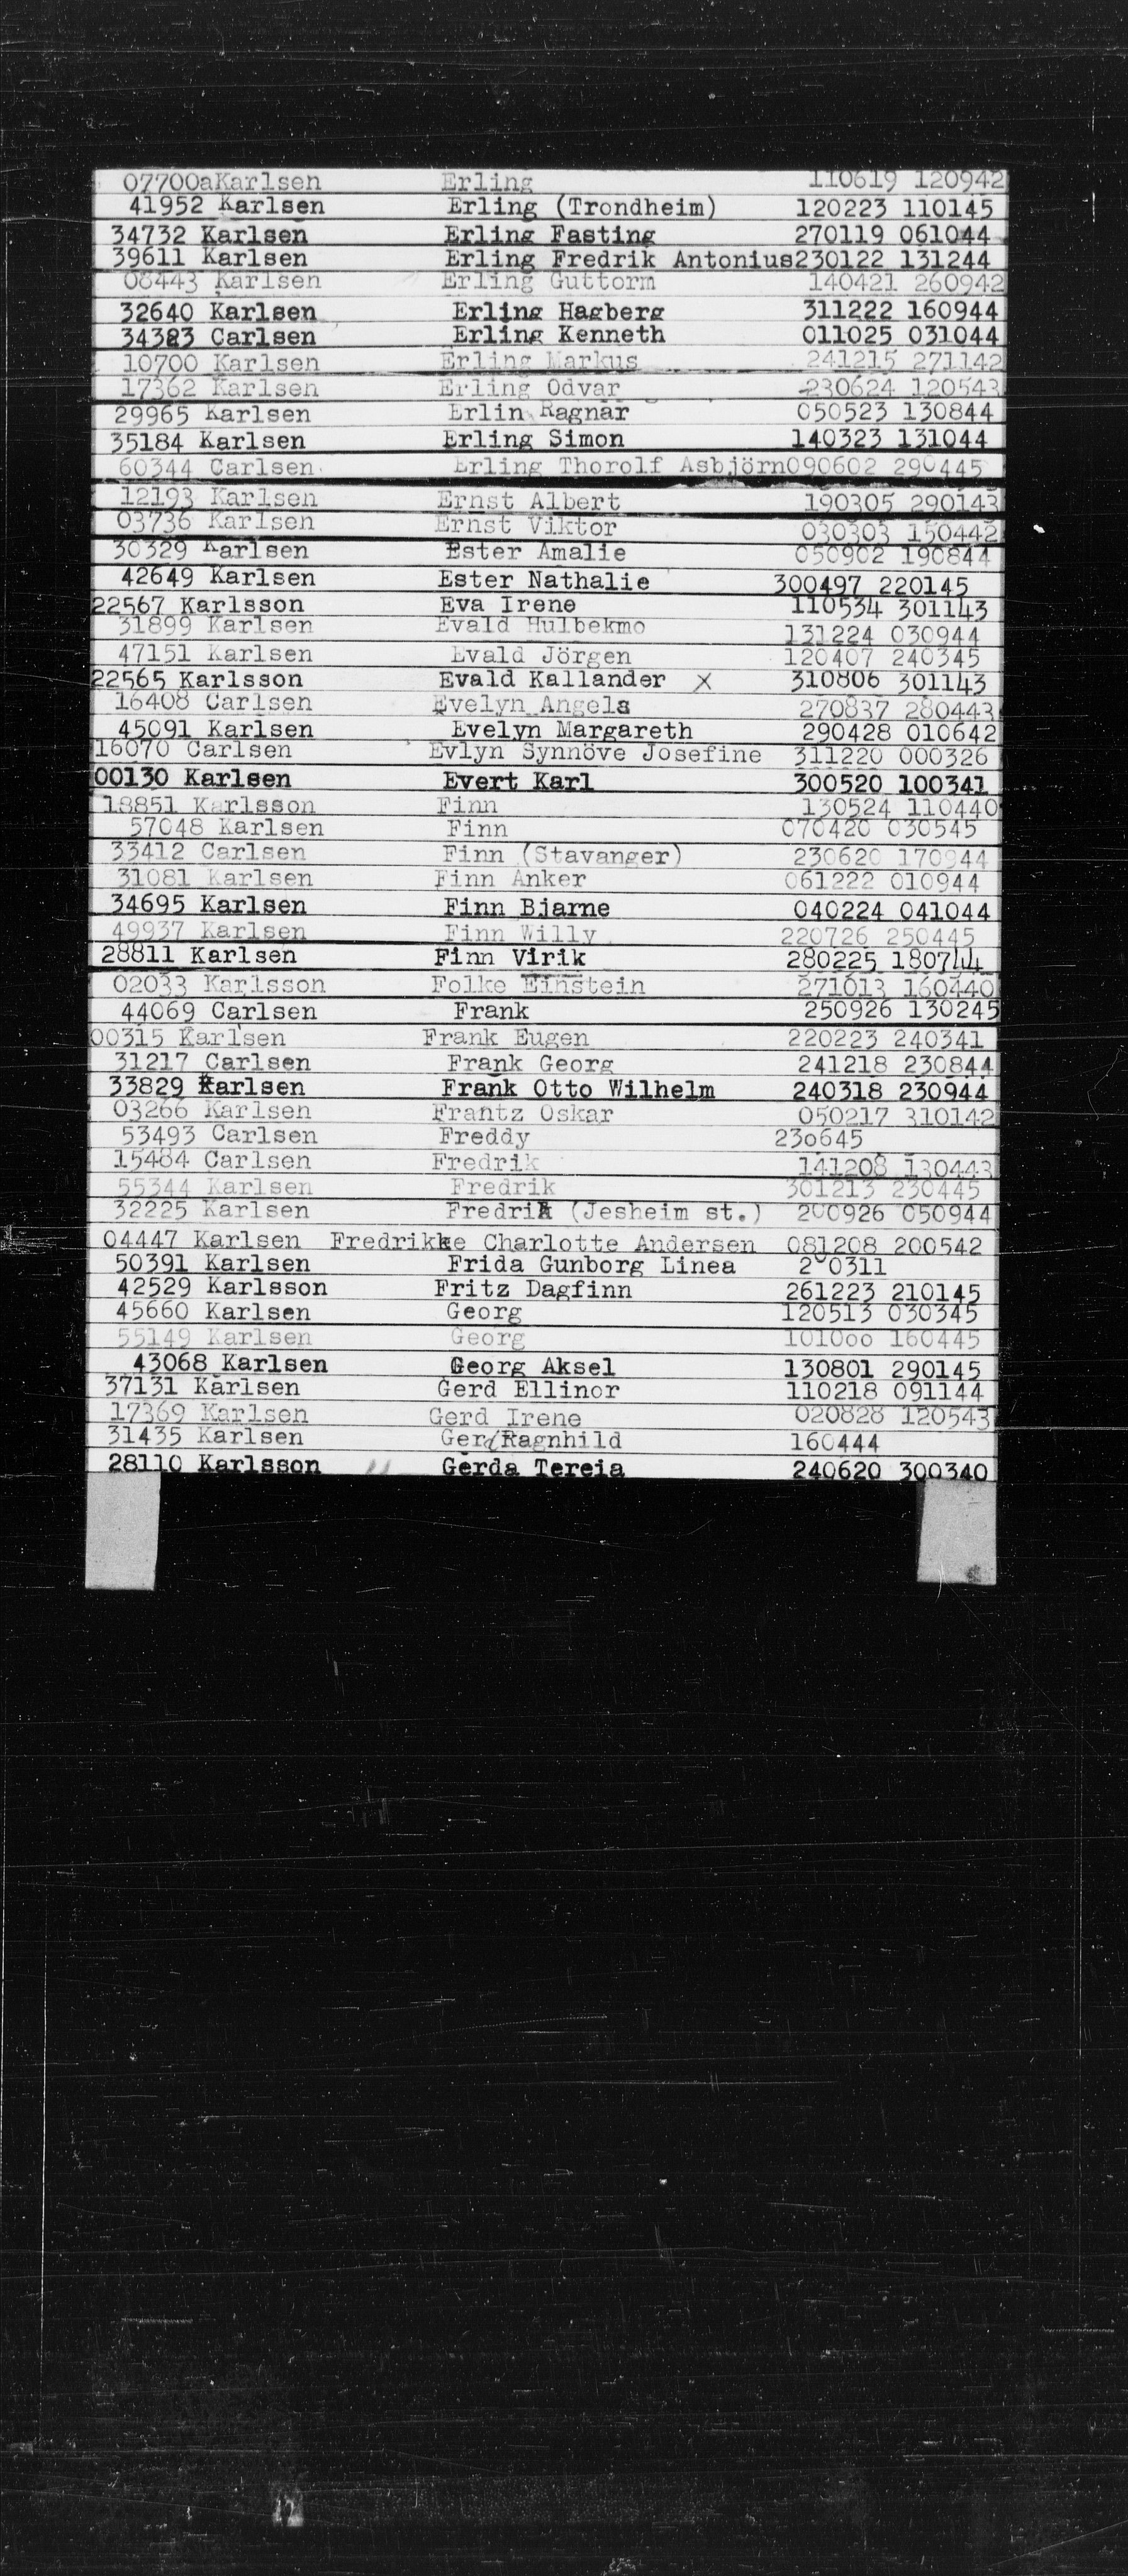 07700aKarlsen Erling 110619 120942
41952 Karlsen Erling (Trondheim) 120223 110145
34732 Karlsen Erling Fasting 270119 061044
39611 Karlsen Erling Fredrik Antonius230122 131244
08443 Karlsen Erling Guttorm 140421 260942
32640 Karlsen Erling Hagberg 311222 160944
34383 Carlsen Erling Kenneth 011025 031044
10700 Karlsen Erling Markus 241215 271142
17362 Karlsen Erling Odvar 230624 120543
29965 Karlsen Erlin Ragnar 050523 130844
35184 Karlsen Erling Simon 140323 131044
60344 Carlsen Erling Thorolf Asbjörn090602 290445
12193 Karlsen Ernst Albert 190305 290143
03736 Karlsen Ernst Viktor 030303 150442
30329 Karlsen Ester Amalie 050902 190844
42649 Karlsen Ester Nathalie 300497 220145
22567 Karlsson Eva Irene 110534 301143
31899 Karlsen Evald Hulbekmo 131224 030944
47151 Karlsen Evald Jörgen 120407 240345
22565 Karlsson Evald Kallander X 310806 301143
16408 Carlsen Evelyn Angela 270837 280443
45091 Karlsen Evelyn Margareth 290428 010642
16070 Carlsen Evlyn Synnöve Josefine 311220 000326
00130 Karlsen Evert Karl 300520 100341
18851 Karlsson Finn 130524 110440
57048 Karlsen Finn 070420 030545
33412 Carlsen Finn (Stavanger) 230620 170944
31081 Karlsen Finn Anker 061222 010944
34695 Karlsen Finn Bjarne 040224 041044
49937 Karlsen Finn Willy 220726 250445
28811 Karlsen Finn Virik 280225 180744
02033 Karlsson Folke Einstein 271013 160440
44069 Carlsen Frank 250926 130245
00315 Karlsen Frank Eugen 220223 240341
31217 Carlsen Frank Georg 241218 230844
33829 Karlsen Frank Otto Wilhelm 240318 230944
03266 Karlsen Frantz Oskar 050217 310142
53493 Carlsen Freddy 230645
15484 Carlsen Fredrik 141208 130443
55344 Karlsen Fredrik 301213 230445
32225 Karlsen Fredrik (Jesheim st.) 200926 050944
04447 Karlsen Fredrikke Charlotte Andersen 081208 200542
50391 Karlsen Frida Gunborg Linea 200311
42529 Karlsson Fritz Dagfinn 261223 210145
45660 Karlsen Georg 120513 030345
55149 Karlsen Georg 101000 160445
43068 Karlsen Georg Aksel 130801 290145
37131 Karlsen Gerd Ellinor 110218 091144
17369 Karlsen Gerd Irene 020828 120543
31435 Karlsen Gerd Ragnhild 160444
28110 Karlsson Gerda Tereia 240620 300340